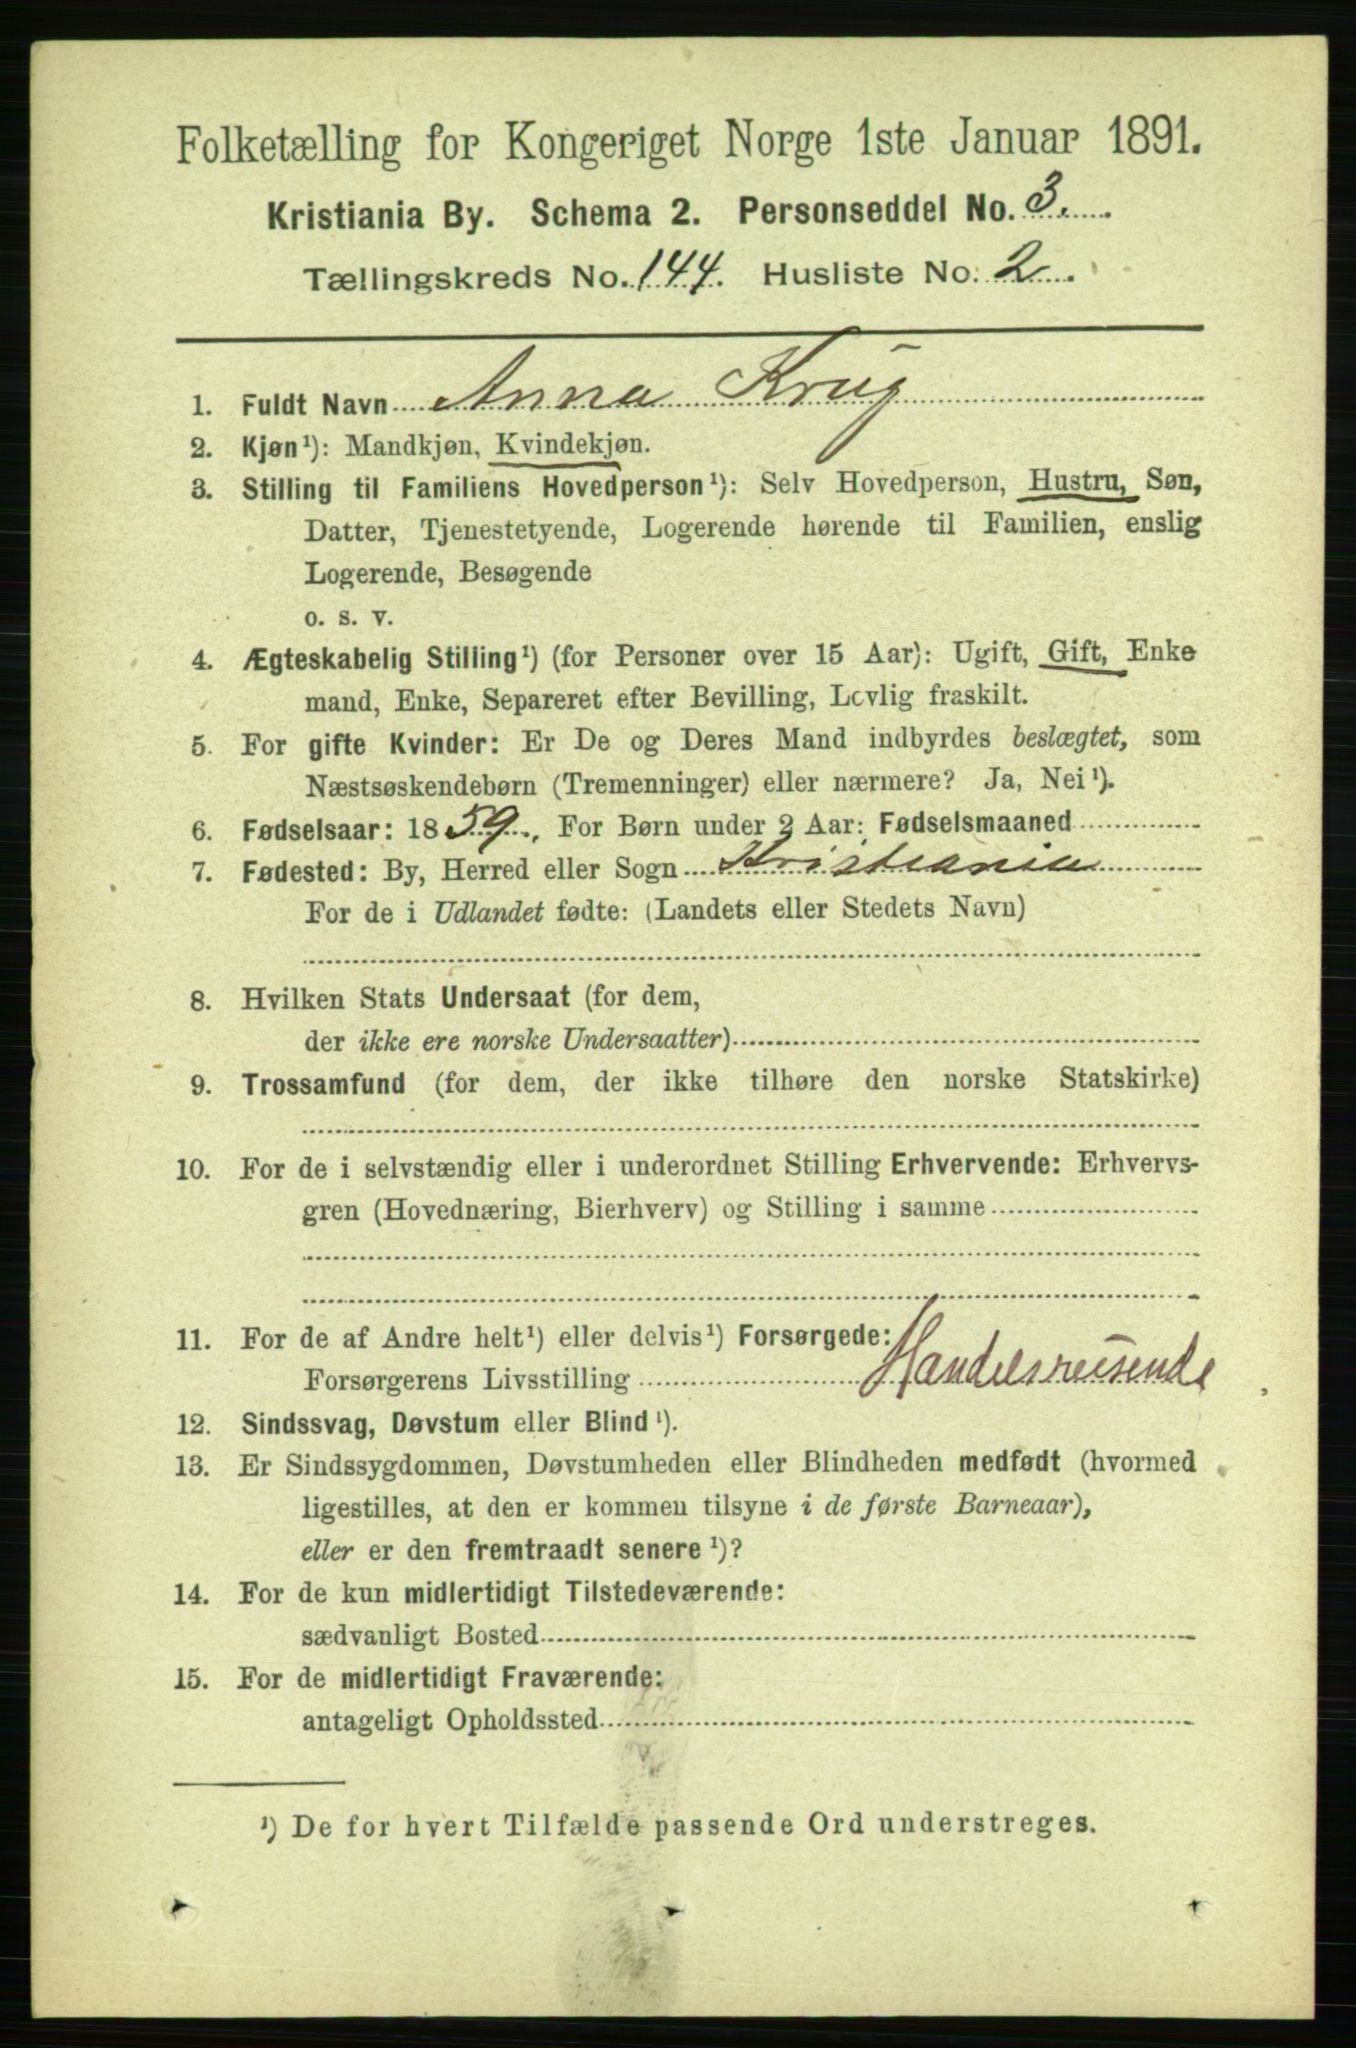 Folketælling for Kongeriget Norge 1ste Januar 1891.
Kristiania By. Schema 2. Personseddel No. 3.
Tællingskreds No. 144. Husliste No. 2.
1. Fuldt Navn Anna Krug
2. Kjøn¹): Mandkjøn, Kvindekjøn.
3. Stilling til Familiens Hovedperson¹): Selv Hovedperson, Hustru, Søn,
Datter, Tjenestetyende, Logerende hørende til Familien, enslig
Logerende, Besøgende
o. s. v.
4. Ægteskabelig Stilling¹) (for Personer over 15 Aar): Ugift, Gift, Enke
mand, Enke, Separeret efter Bevilling, Lovlig fraskilt.
5. For gifte Kvinder: Er De og Deres Mand indbyrdes beslægtet, som
Næstsøskendebørn (Tremenninger) eller nærmere? Ja, Nei¹).
6. Fødselsaar: 1859. For Børn under 2 Aar: Fødselsmaaned
7. Fødested: By, Herred eller Sogn Kristiania
For de i Udlandet fødte: (Landets eller Stedets Navn)
8. Hvilken Stats Undersaat (for dem,
der ikke ere norske Undersaatter)
9. Trossamfund (for dem, der ikke tilhøre den norske Statskirke)
10. For de i selvstændig eller i underordnet Stilling Erhvervende: Erhvervs-
gren (Hovednæring, Bierhverv) og Stilling i samme
11. For de af Andre helt¹) eller delvis¹) Forsørgede:
Forsørgerens Livsstilling Handelsreisende
12. Sindssvag, Døvstum eller Blind¹).
13. Er Sindssygdommen, Døvstumheden eller Blindheden medfødt (hvormed
ligestilles, at den er kommen tilsyne i de første Barneaar),
eller er den fremtraadt senere¹)?
14. For de kun midlertidigt Tilstedeværende:
sædvanligt Bosted
15. For de midlertidigt Fraværende:
antageligt Opholdssted
¹) De for hvert Tilfælde passende Ord understreges.